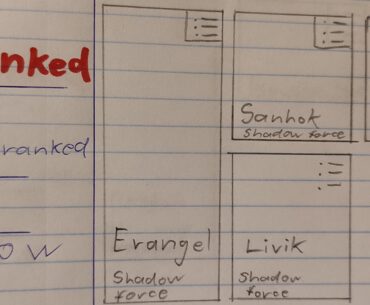 nked
ranked
ow
Erangel
Shadow
force
Sanhok
Shadow force
Livik
Shadow
force